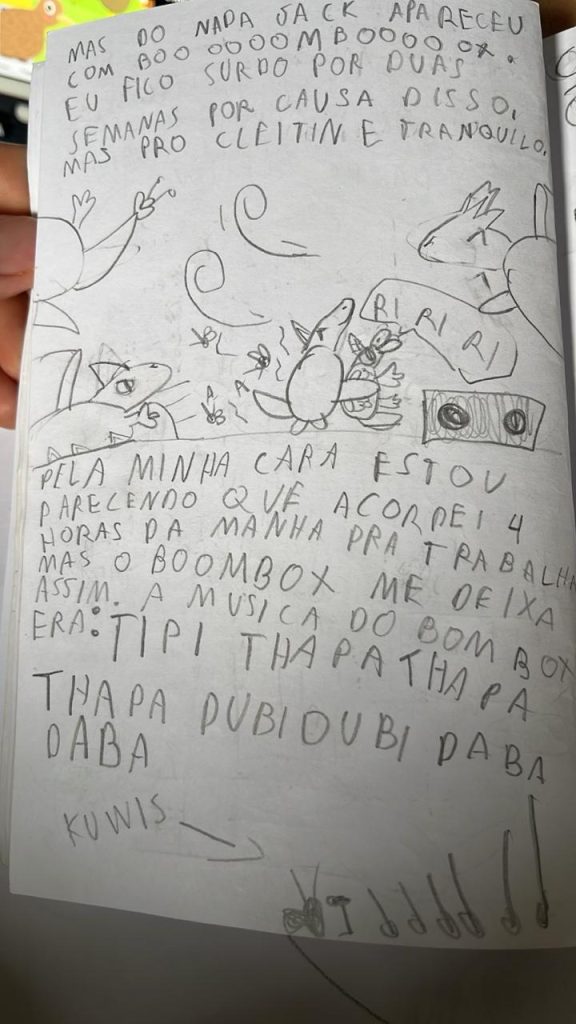 MAS DO NADA JACK APARECEU
COM BOOOOOOOMBOOOOOX.
EU FICO SURDO POR DUAS
SEMANAS POR CAUSA DISSO,
MAS PRO CLEITIN E TRANQUILO.
RI
RI
RI
A
A
PELA MINHA CARA ESTOU
PARECENDO QUE ACORDEI 4
HORAS DA MANHA PRA TRABALHA
MAS O BOOMBOX ME DEIXA
ASSIM. A MUSICA DO BOMBOX
ERA: TIPI THAPATHAPA
THAPA DUBIDUBI DABA
DABA
KUWIS